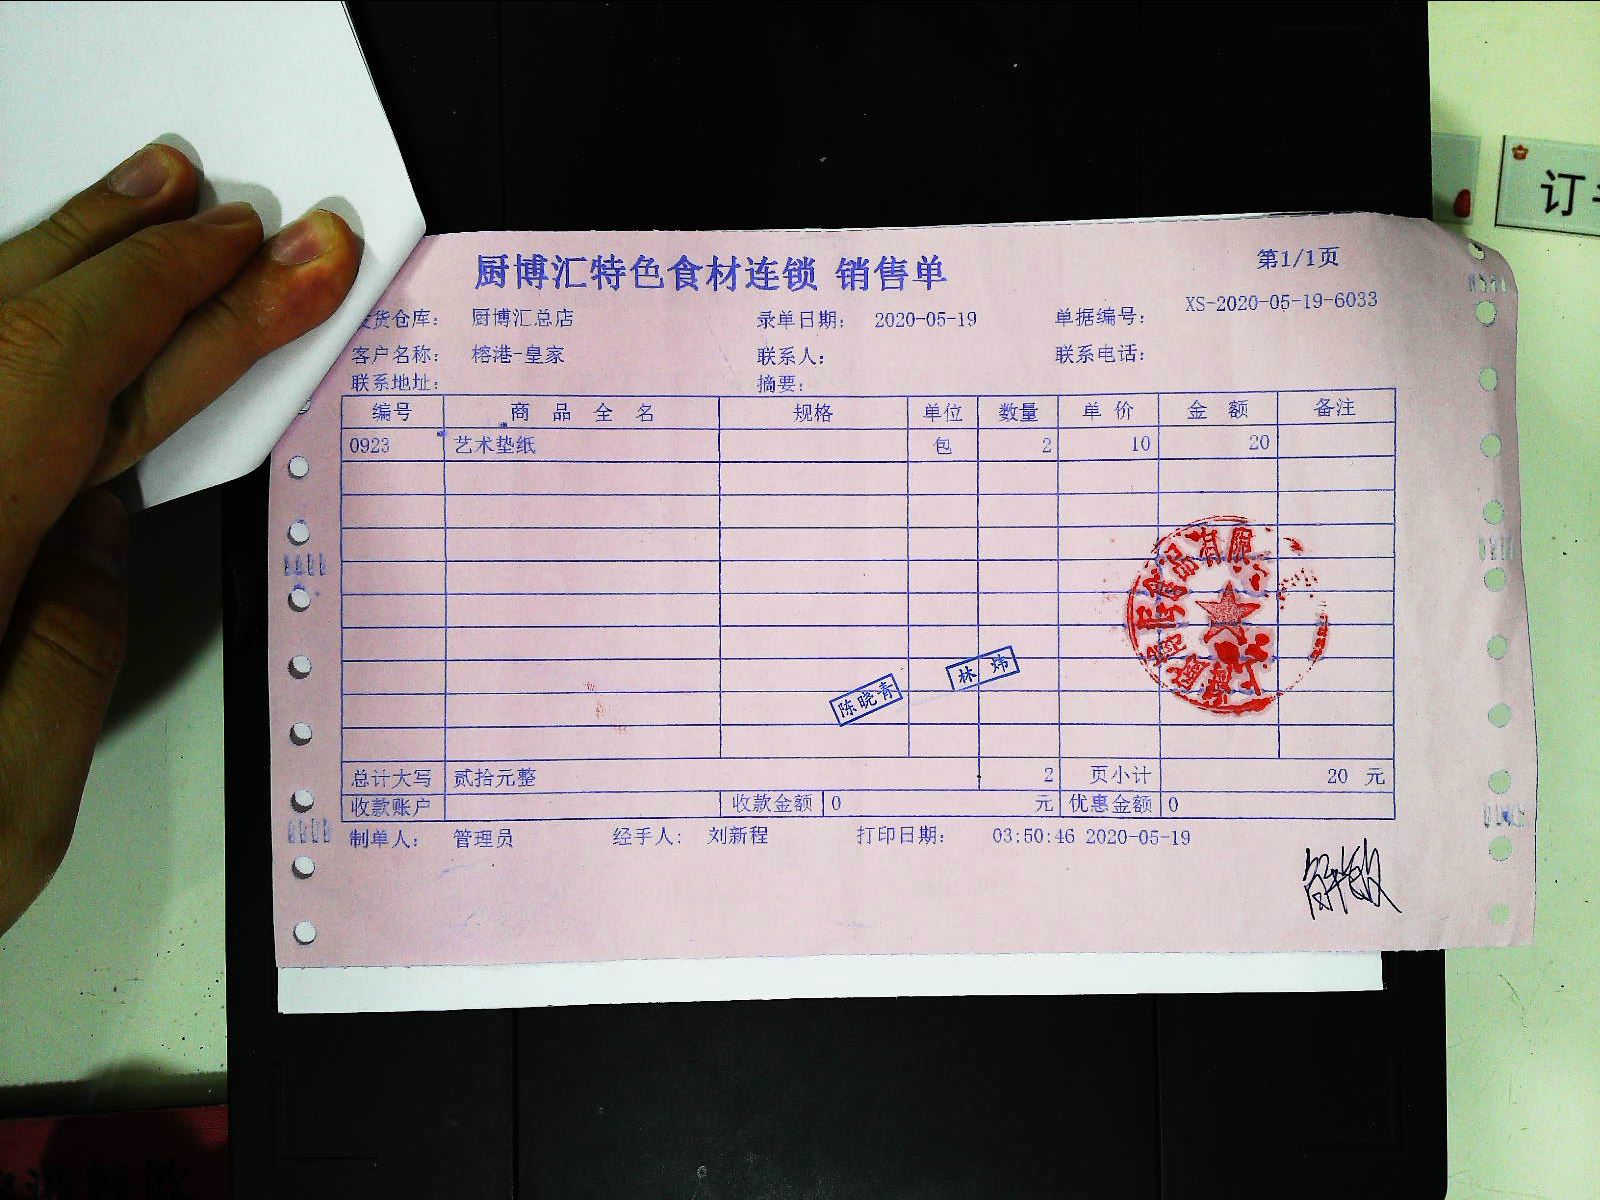 厨博汇特色食材连锁 销售单 第1/1页
货仓库： 厨博汇总店 录单日期： 2020-05-19 单据编号： XS-2020-05-19-6033
客户名称： 榕港-皇家 联系人： 联系电话：
联系地址： 摘要：
编号 商 品 全 名 规格 单位 数量 单 价 金 额 备注
0923 艺术垫纸 包 2 10 20
食品有限
陈晓青 林 炜
总计大写 贰拾元整 2 页小计 20 元
收款账户 收款金额 0 元 优惠金额 0
制单人： 管理员 经手人： 刘新程 打印日期： 03:50:46 2020-05-19
订